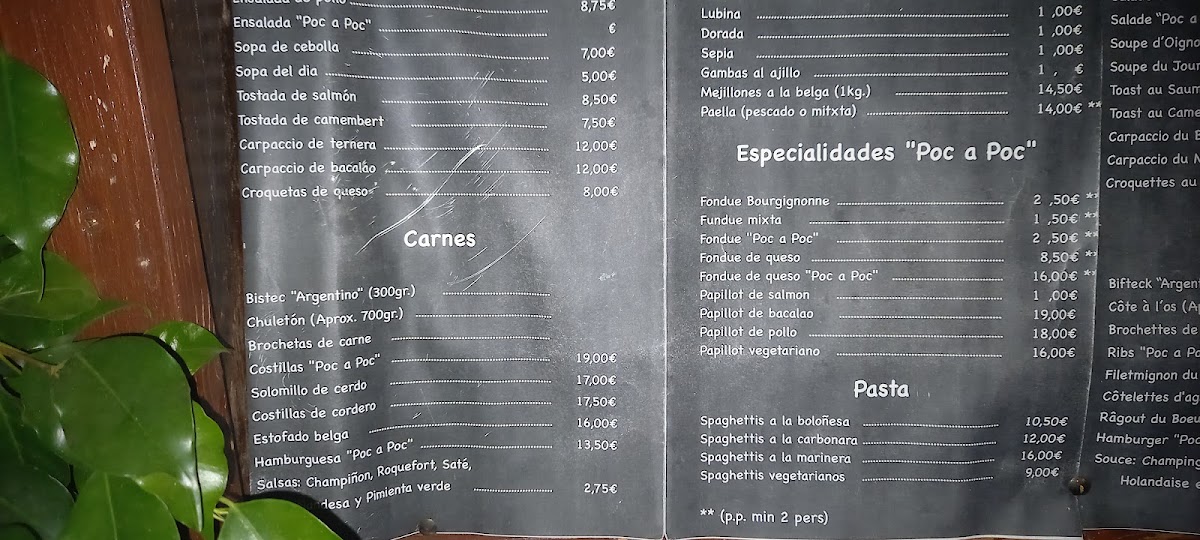 Ensalada de pollo 8,75€
Ensalada "Poc a Poc" €
Sopa de cebolla 7,00€
Sopa del dia 5,00€
Tostada de salmón 8,50€
Tostada de camembert 7,50€
Carpaccio de ternera 12,00€
Carpaccio de bacalao 12,00€
Croquetas de queso 8,00€
Carnes
Bistec "Argentino" (300gr.)
Chuletón (Aprox. 700gr.)
Brochetas de carne
Costillas "Poc a Poc" 19,00€
Solomillo de cerdo 17,00€
Costillas de cordero 17,50€
Estofado belga 16,00€
Hamburguesa "Poc a Poc" 13,50€
Salsas: Champiñon, Roquefort, Saté,
desa y Pimienta verde 2,75€
Lubina 1 ,00€
Dorada 1 ,00€
Sepia 1 ,00€
Gambas al ajillo 1 , €
Mejillones a la belga (1kg.) 14,50€
Paella (pescado o mitxta) 14,00€ **
Especialidades "Poc a Poc"
Fondue Bourgignonne 2 ,50€ **
Fundue mixta 1 ,50€ **
Fondue "Poc a Poc" 2 ,50€ **
Fondue de queso 8,50€ **
Fondue de queso "Poc a Poc" 16,00€ **
Papillot de salmon 1 ,00€
Papillot de bacalao 19,00€
Papillot de pollo 18,00€
Papillot vegetariano 16,00€
Pasta
Spaghettis a la boloñesa 10,50€
Spaghettis a la carbonara 12,00€
Spaghettis a la marinera 16,00€
Spaghettis vegetarianos 9,00€
** (p.p. min 2 pers)
Salade "Poc a
Soupe d'Oigno
Soupe du Jour
Toast au Saum
Toast au Came
Carpaccio du B
Carpaccio du M
Croquettes au
Bifteck "Argent
Côte à l´os (A
Brochettes de
Ribs "Poc a Po
Filetmignon du
Côtelettes d'ag
Râgout du Boeu
Hamburger "Poc
Souce: Champing
Holandaise e